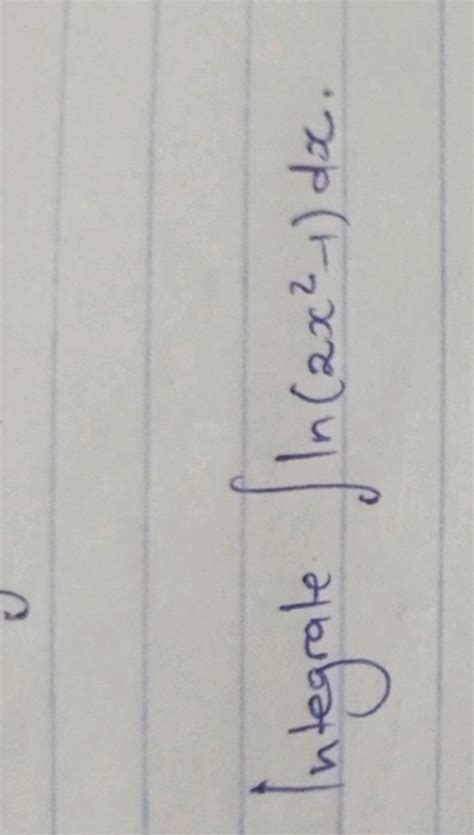 Integrate ∫ ln(2x²-1) dx.